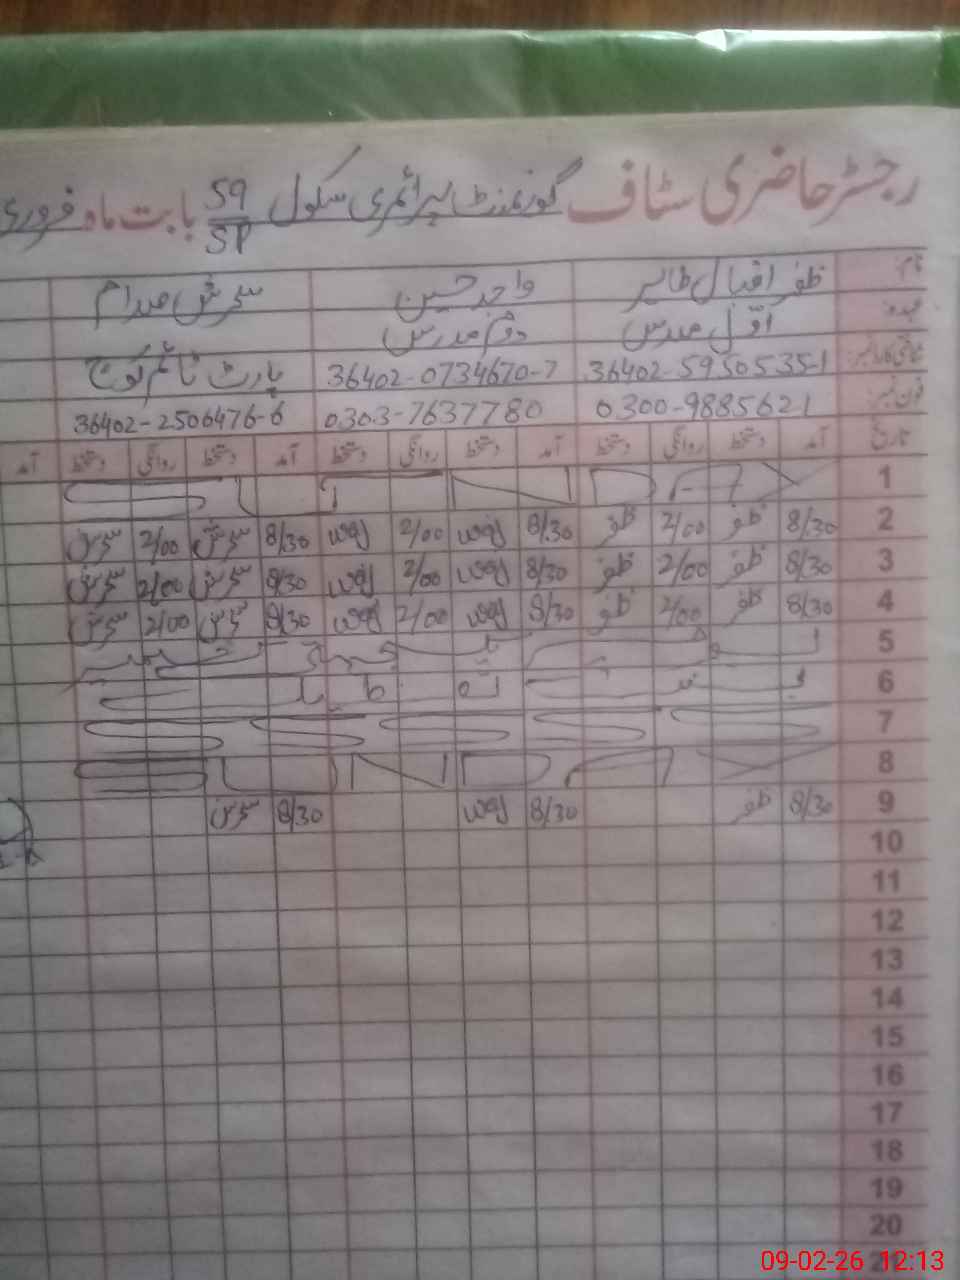 رجسٹر حاضری سٹاف گورنمنٹ پرائمری سکول 59/SP بابت ماہ فروری
نام ظفر اقبال طاہر واجد حسین
عہدہ اوّل مدرس دوم مدرس
شناختی کارڈ نمبر 36402-5950535-1 36402-0734670-7 پارٹ ٹائم کوچ
فون نمبر 0300-9885621 0303-7637780 36402-2506476-6
تاریخ آمد دستخط روانگی دستخط آمد دستخط روانگی دستخط آمد دستخط روانگی دستخط آمد
1
2 8/30 ظفر 2/00 ظفر 8/30 waj 2/00 waj 8/30 2/00
3 8/30 ظفر 2/00 ظفر 8/30 waj 2/00 waj 8/30 2/00
4 8/30 ظفر 2/00 ظفر 8/30 waj 2/00 waj 8/30 2/00
5
6
7
8
9 8/30 ظفر 8/30 waj 8/30
10
11
12
13
14
15
16
17
18
19
20
21
09-02-26 12:13